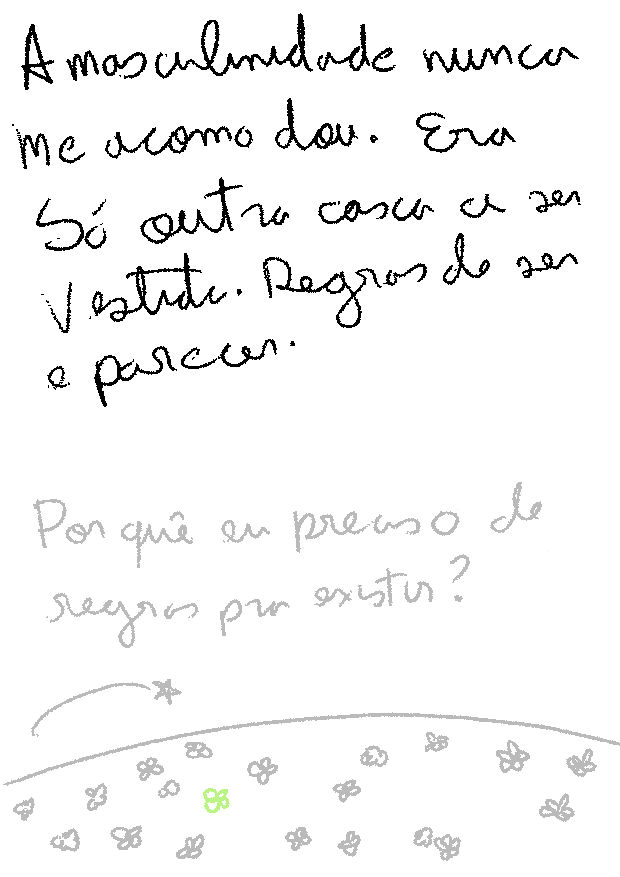 A masculinidade nunca
me acomodou. Era
só outra casca a ser
vestida. Regras de ser
e parecer.
Por quê eu preciso de
regras pra existir?